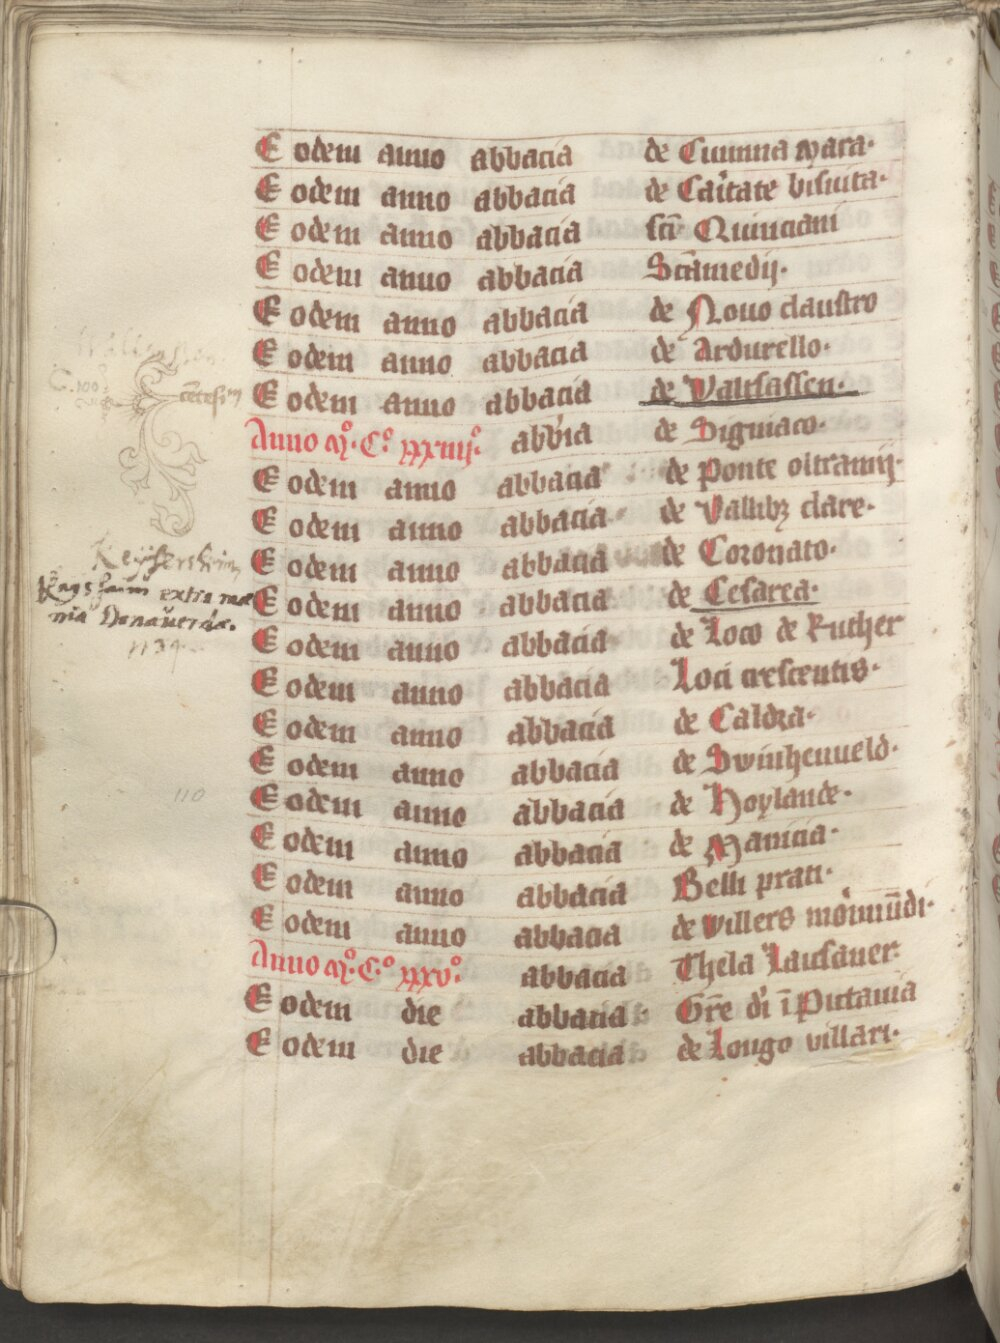 Eodem anno abbacia de Cumma mara·
Eodem anno abbacia de Caritate bisuita·
Eodem anno abbacia sci Quinciani
Eodem anno abbacia Scamedij·
Eodem anno abbacia de Nouo claustro
Eodem anno abbacia de Ardurello·
centesim
Eodem anno abbacia de Valtsassen·
Anno mº·Cº xxxiiijº· abbia de Signiaco·
Eodem anno abbacia de Ponte oltramij·
Eodem anno abbacia de Vallibz clare·
Eodem anno abbacia de Coronato·
Keysersheim
Eodem anno abbacia de Cesarea·
extra mæ
nia Donauerdæ.
1134
Eodem anno abbacia de Loco de Ruther
Eodem anno abbacia Loci crescentis·
Eodem anno abbacia de Caldra·
Eodem anno abbacia de Swinhenueld·
110
Eodem anno abbacia de Hoylande·
Eodem anno abbacia de Manicia·
Eodem anno abbacia Belli prati·
Eodem anno abbacia de Villers morimūdi·
Anno mº·C·º xxxvº· abbacia Thela Lausauer·
Eodem die abbacia Gre di ī Putania
Eodem die abbacia de Longo villari·